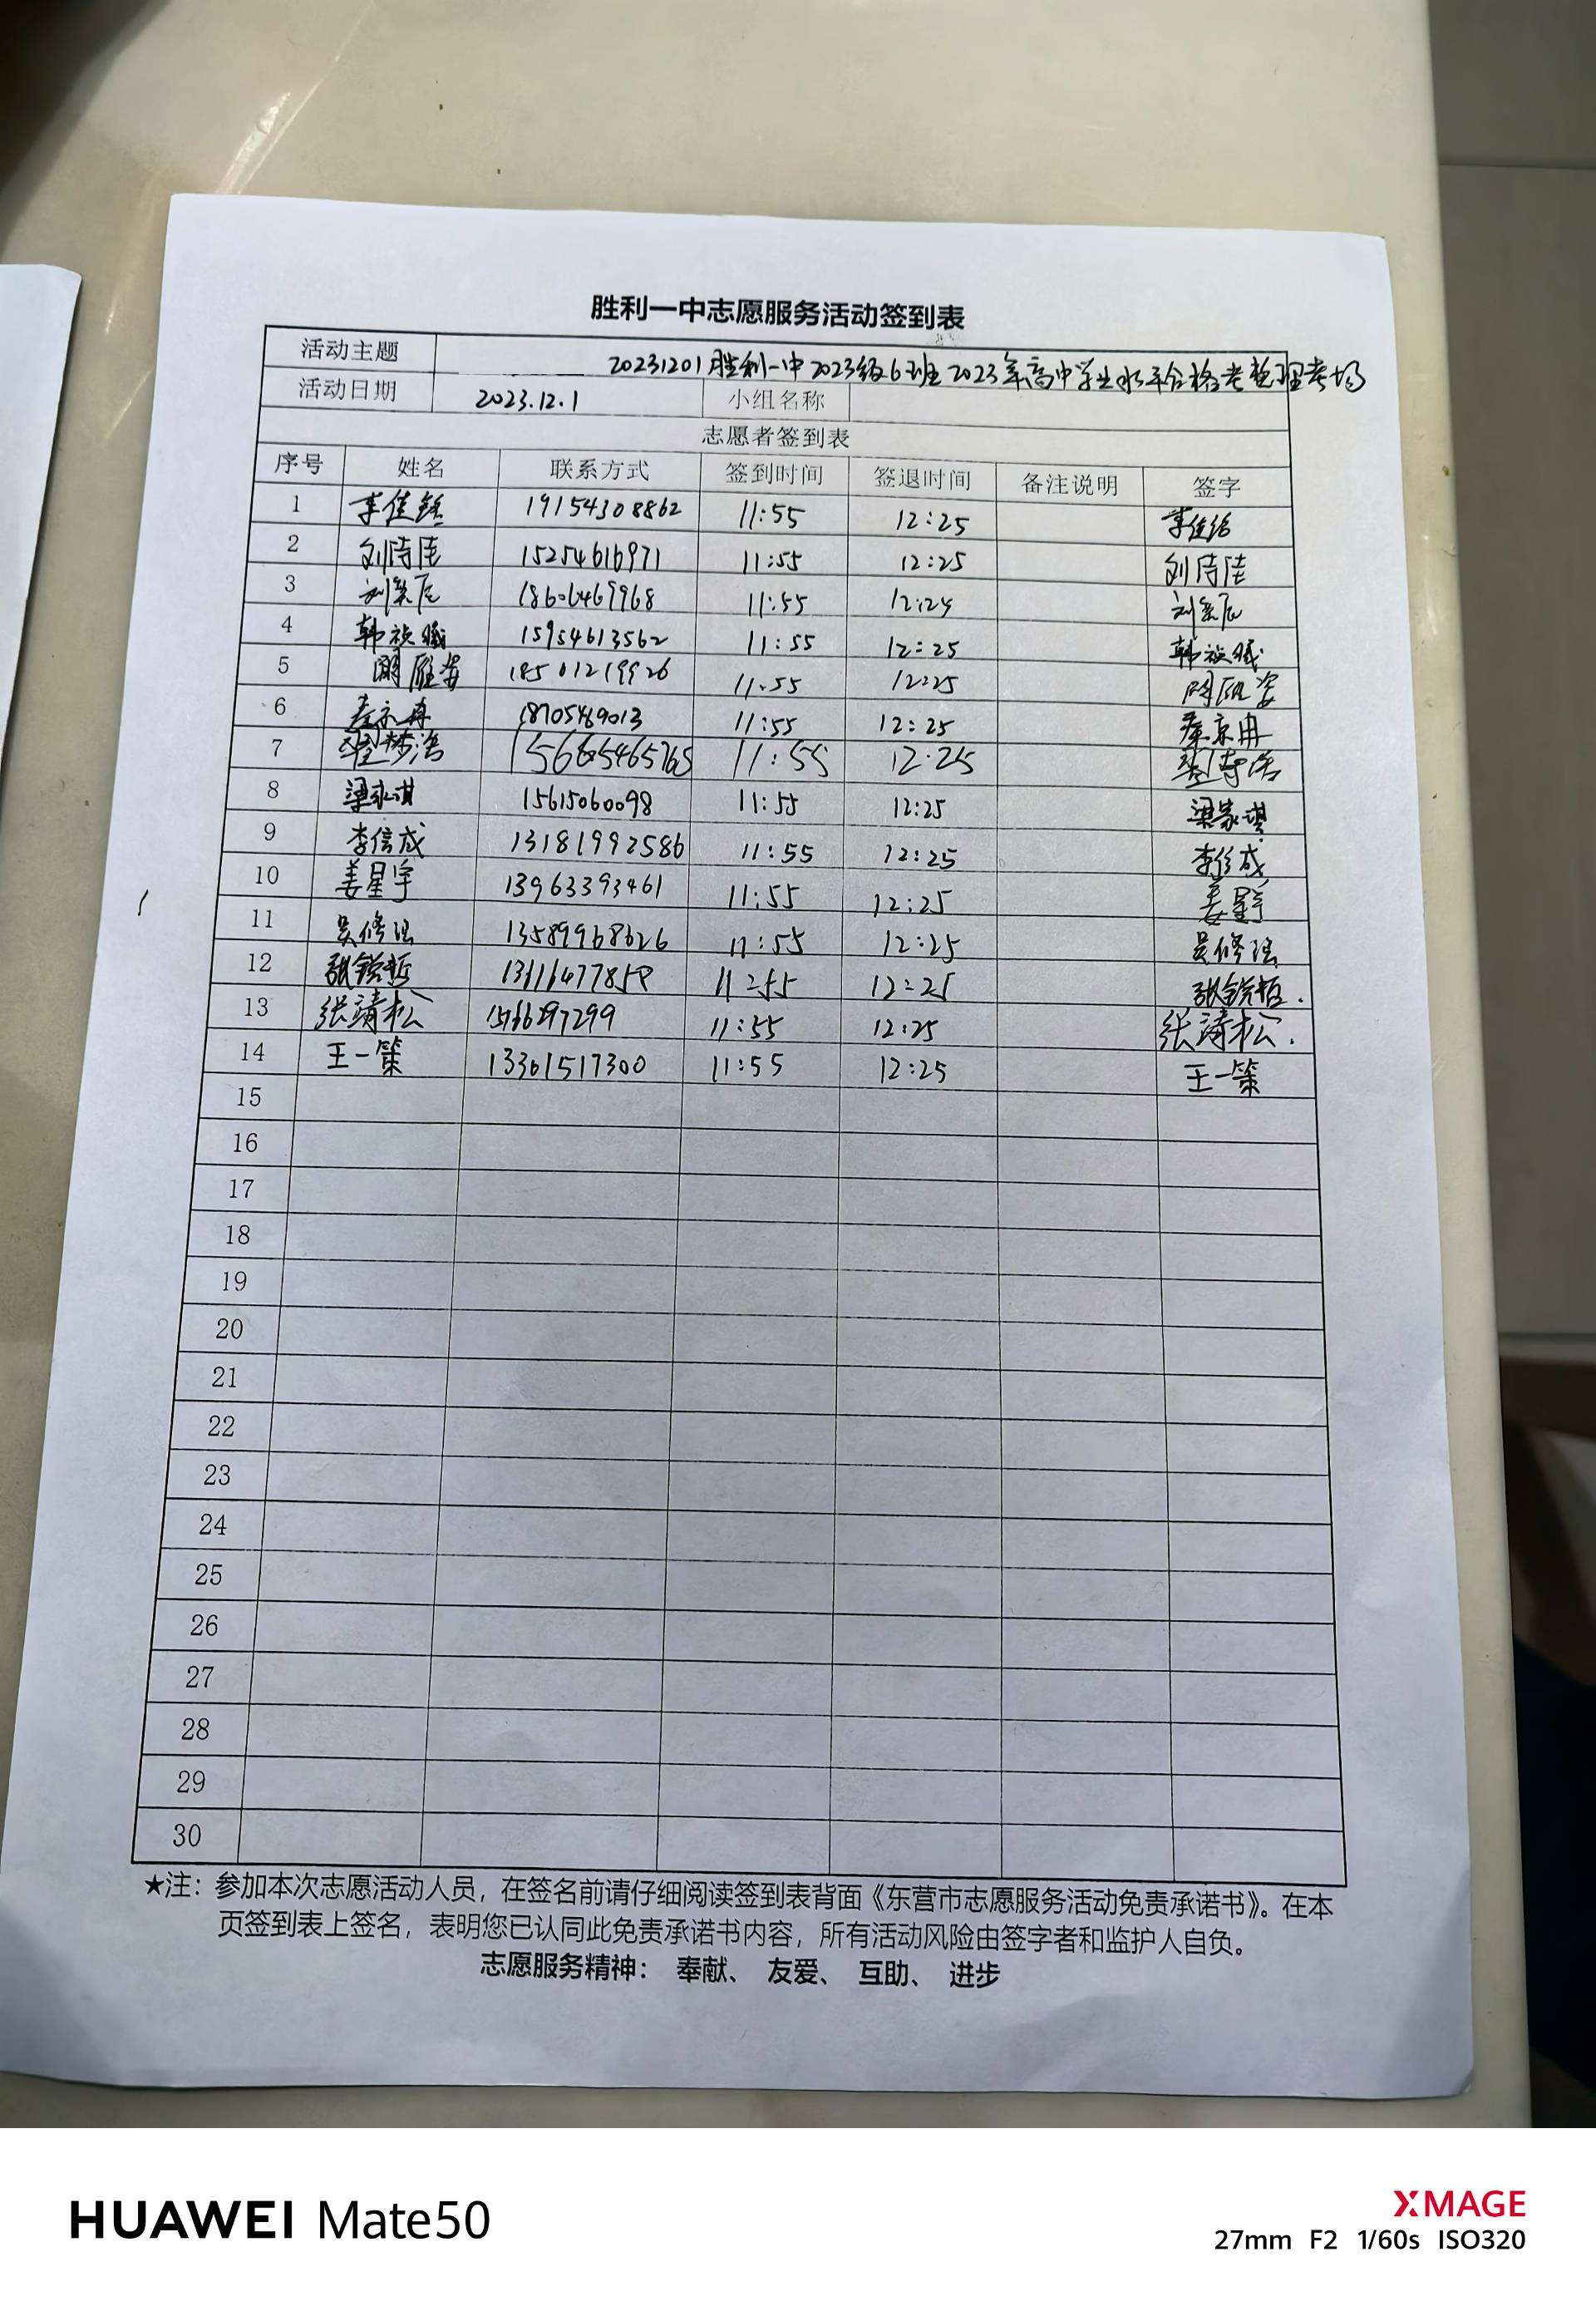 胜利一中志愿服务活动签到表
活动主题 20231201胜利一中2023级6班2023年高中学生水平合格考整理考场
活动日期 2023.12.1 小组名称
志愿者签到表
序号 姓名 联系方式 签到时间 签退时间 备注说明 签字
1 李佳 19154308862 11:55 12:25 李佳
2 刘诗佳 15254616971 11:55 12:25 刘诗佳
3 刘 11:55 刘
4 韩 15954613562 11:55 12:25 韩
5 雁姿 18501219926 11.55 12:25 姿
6 秦京冉 18705469013 11:55 12:25 秦京冉
7 15665465765 11:55 12.25
8 梁家琪 15615060098 11:55 12:25 梁家琪
9 李信成 13181992586 11:55 12:25 李信成
10 姜星宇 13963393461 11:55 12:25 姜星宇
11 吴修 13589968626 11:55 12:25 吴修
12 张锐哲 11:55 12:25 张锐哲.
13 张靖松 11:55 12:25 张靖松.
14 王一策 13361517300 11:55 12:25 王一策
15
16
17
18
19
20
21
22
23
24
25
26
27
28
29
30
★注：参加本次志愿活动人员，在签名前请仔细阅读签到表背面《东营市志愿服务活动免责承诺书》。在本
页签到表上签名，表明您已认同此免责承诺书内容，所有活动风险由签字者和监护人自负。
志愿服务精神： 奉献、 友爱、 互助、 进步
HUAWEI Mate50
XMAGE
27mm F2 1/60s ISO320